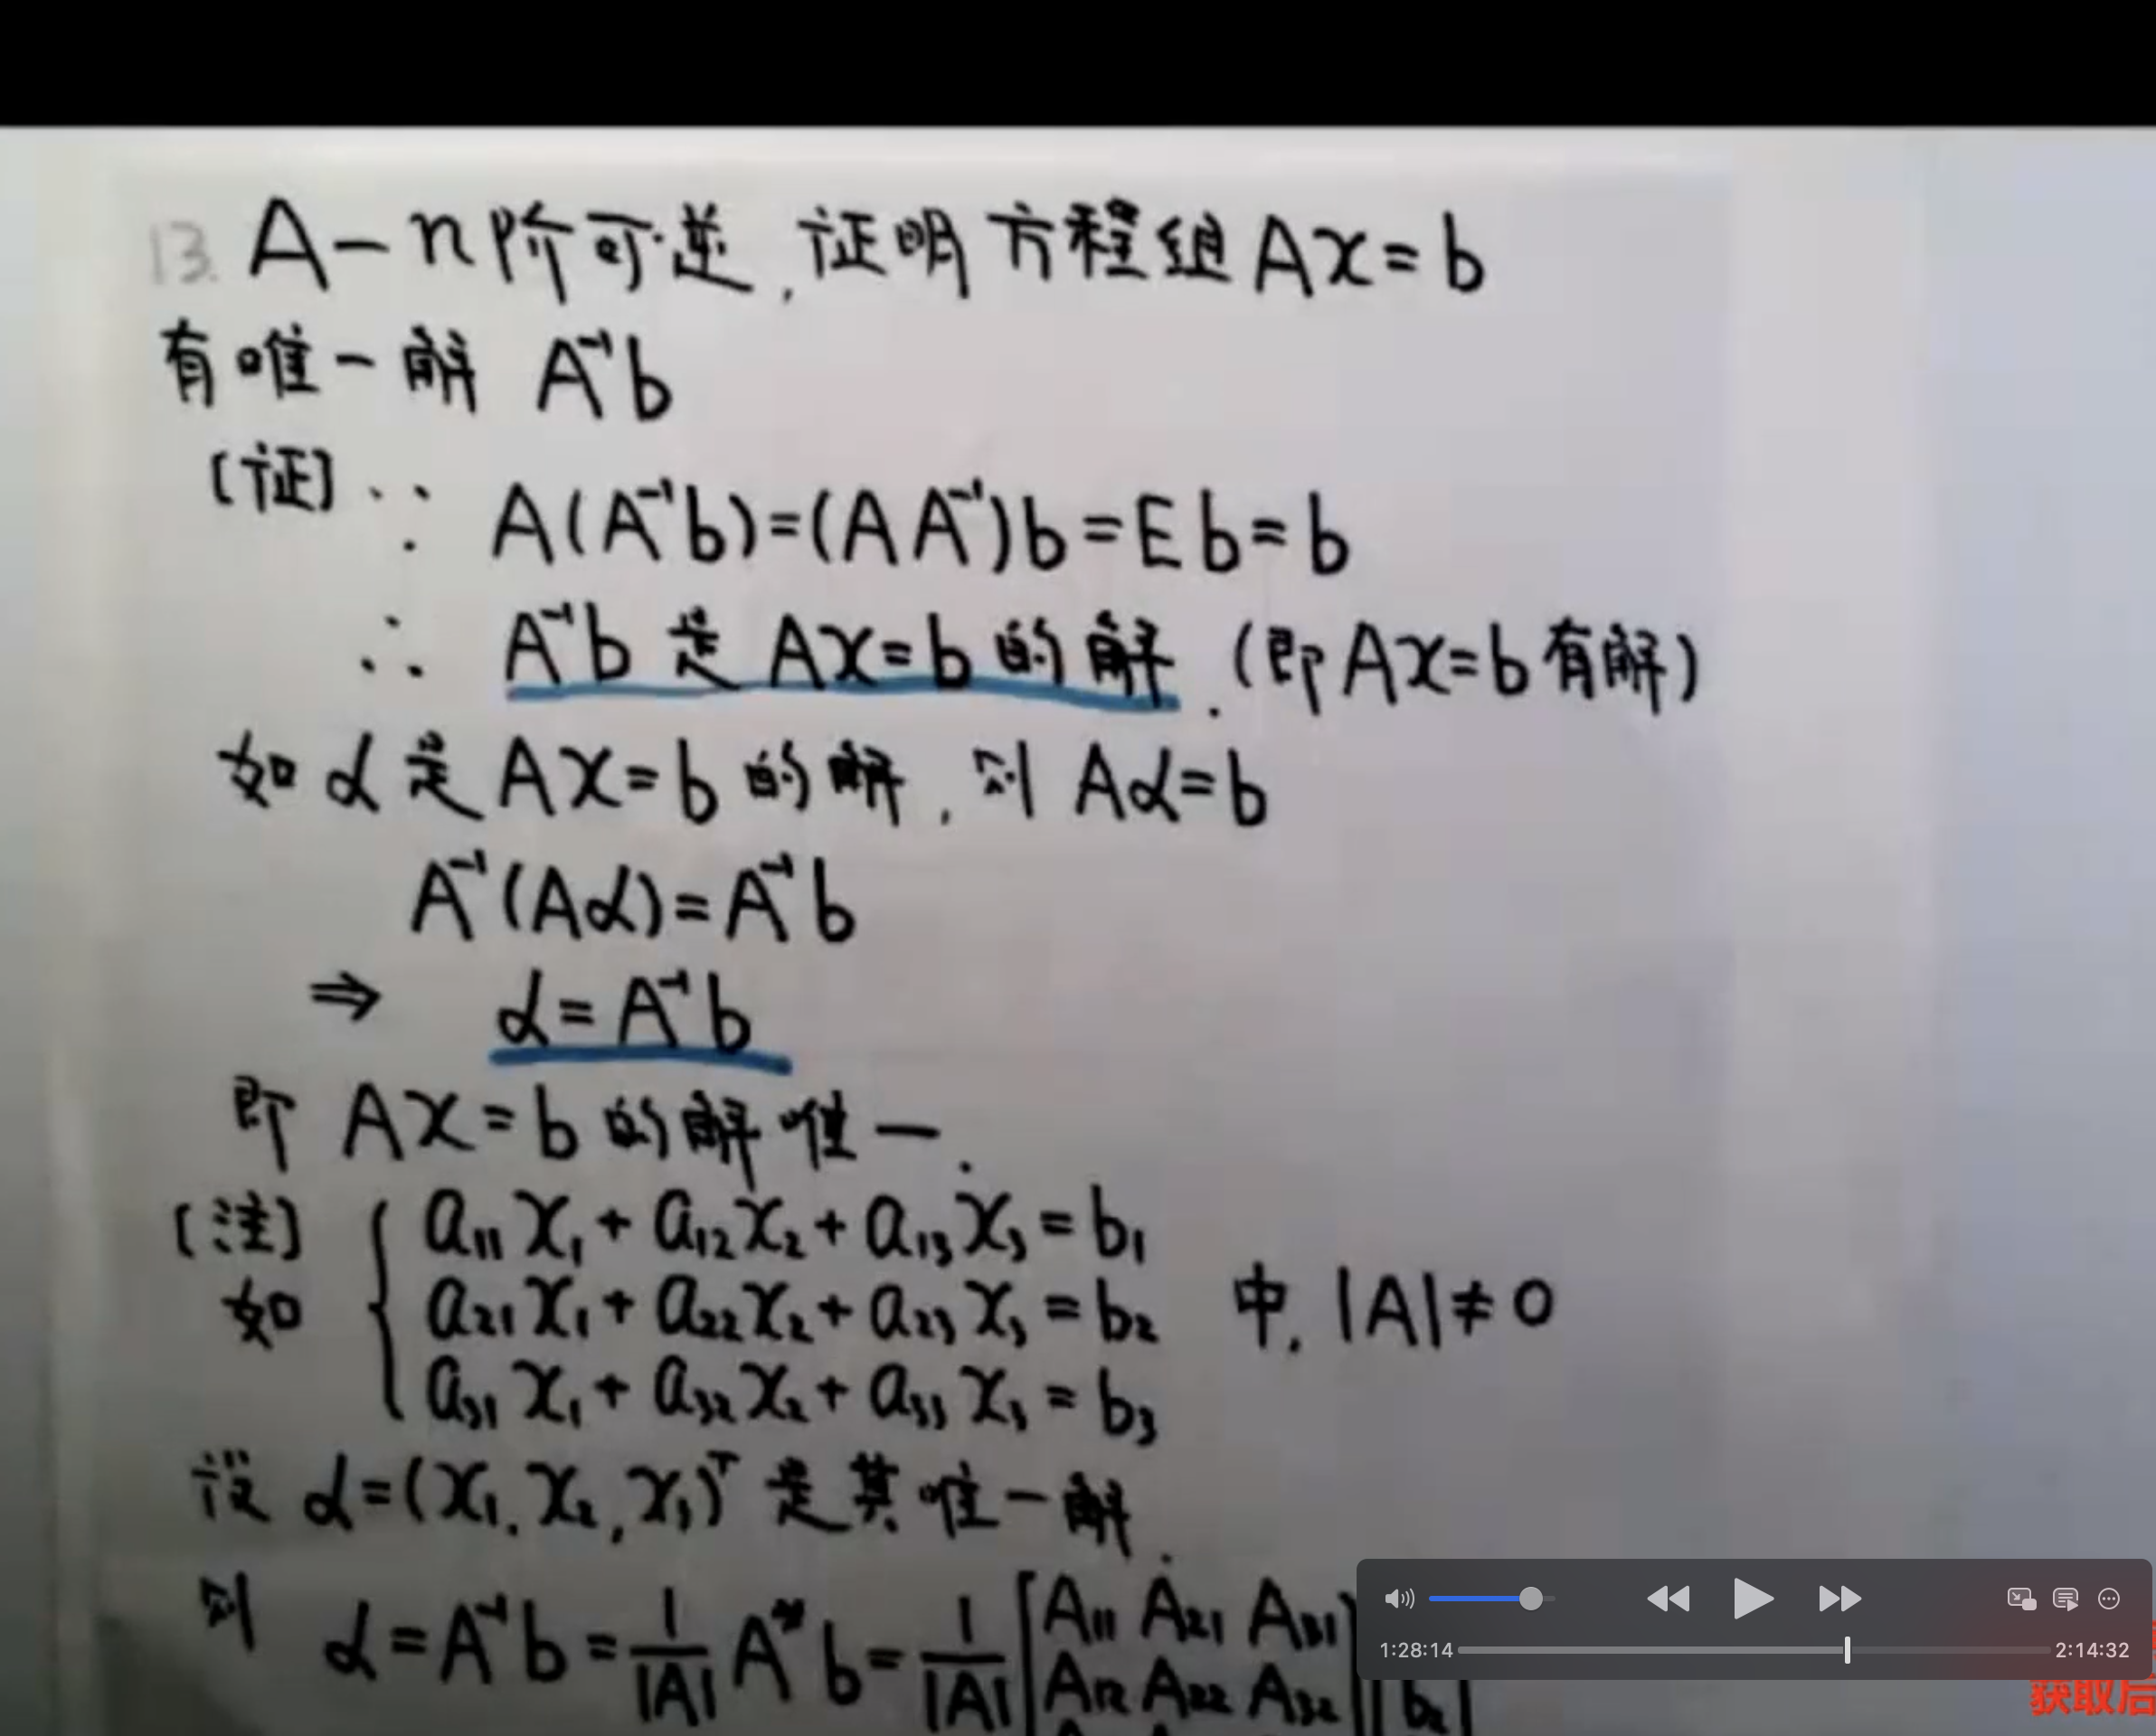 13. A－n阶可逆, 证明方程组 Ax=b
有唯一解 A⁻¹b
[证] ∵ A(A⁻¹b)=(AA⁻¹)b=Eb=b
∴ A⁻¹b 是 Ax=b 的解. (即 Ax=b 有解)
如 α 是 Ax=b 的解, 则 Aα=b
A⁻¹(Aα)=A⁻¹b
⇒ α=A⁻¹b
即 Ax=b 的解唯一.
[注]
如 { a₁₁x₁+a₁₂x₂+a₁₃x₃=b₁
a₂₁x₁+a₂₂x₂+a₂₃x₃=b₂ 中, |A|≠0
a₃₁x₁+a₃₂x₂+a₃₃x₃=b₃
设 α=(x₁, x₂, x₃)ᵀ 是其唯一解.
则 α=A⁻¹b=1/|A| A*b=1/|A| [A₁₁ A₂₁ A₃₁
A₁₂ A₂₂ A₃₂] [b₂]
1:28:14 2:14:32
获取后